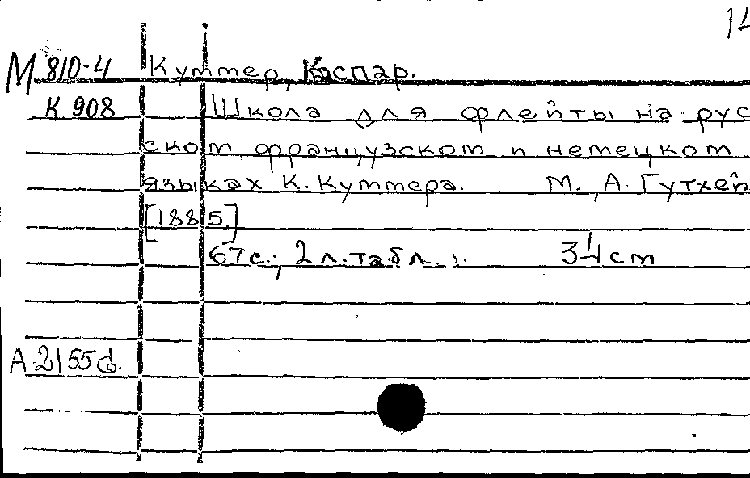 14
М 810-4 Куммер, Каспар.
К 908 Школа для флейты на рус
ском, французском и немецком
языках К. Куммера. М., А. Гутхей
[1885]
67 с.; 2 л. табл.; 34 cm
А 2155d.